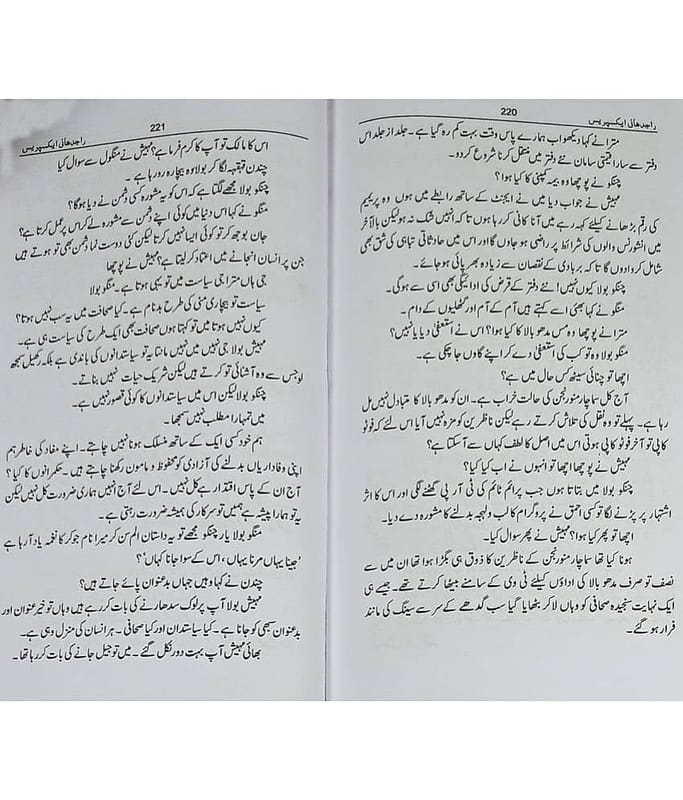 220
راجدھانی ایکسپریس
مترا نے کہا دیکھو اب ہمارے پاس وقت بہت کم رہ گیا ہے۔ جلد از جلد اس
دفتر سے سارا قیمتی سامان نئے دفتر میں منتقل کرنا شروع کردو۔
چنکو نے پوچھا وہ بیمہ کمپنی کا کیا ہوا؟
مہیش نے جواب دیا میں نے ایجنٹ کے ساتھ رابطے میں ہوں وہ پریمیم
کی رقم بڑھانے کیلئے کہہ رہے ہیں میں آنا کانی کررہا ہوں تاکہ انہیں شک نہ ہو لیکن بالآخر
میں انشورنس والوں کی شرائط پر راضی ہو جاؤں گا اور اس میں حادثاتی تباہی کی شق بھی
شامل کروا دوں گا تاکہ بربادی کے نقصان سے زیادہ بھرپائی ہو جائے۔
چنکو بولا کیوں نہیں! نئے دفتر کے قرض کی ادائیگی بھی اسی سے ہوگی۔
منگو نے کہا بھئی اسے کہتے ہیں آم کے آم اور گٹھلیوں کے دام۔
مترا نے پوچھا وہ مس مدھو بالا کا کیا ہوا؟ اس نے استعفیٰ دیا یا نہیں؟
منگو بولا وہ تو کب کی استعفیٰ دے کر اپنے گاؤں جا چکی ہے۔
اچھا تو چنائی سیٹھ کس حال میں ہے؟
آج کل سماچار منورنجن کی حالت خراب ہے۔ ان کو مدھو بالا کا متبادل نہیں مل
رہا ہے۔ پہلے تو وہ نقل کی تلاش کرتے رہے لیکن ناظرین کو مزہ نہیں آیا اس لئے کہ فوٹو
کاپی تو آخر فوٹو کاپی ہوتی اس میں اصل کا لطف کہاں سے آسکتا ہے؟
مہیش نے پوچھا اچھا تو انہوں نے اب کیا کیا؟
چنکو بولا میں بتاتا ہوں جب پرائم ٹائم کی ٹی آر پی گھٹنے لگی اور اس کا اثر
اشتہار پر پڑنے لگا تو کسی احمق نے پروگرام کا لب ولہجہ بدلنے کا مشورہ دے دیا۔
اچھا تو پھر کیا ہوا؟ مہیش نے پھر سوال کیا۔
ہونا کیا تھا سماچار منورنجن کے ناظرین کا ذوق ہی بگڑا ہوا تھا ان میں سے
نصف تو صرف مدھو بالا کی اداؤں کیلئے ٹی وی کے سامنے بیٹھا کرتے تھے۔ جیسے ہی
ایک نہایت سنجیدہ صحافی کو وہاں لا کر بٹھایا گیا سب گدھے کے سر سے سینگ کی مانند
فرار ہو گئے۔
221
راجدھانی ایکسپریس
اس کا مالک تو آپ کا کرم فرما ہے؟ مہیش نے منگول سے سوال کیا
چندن قہقہہ لگا کر بولا وہ بیچارہ رو رہا ہے۔
چنکو بولا مجھے لگتا ہے کہ اس کو یہ مشورہ کسی دشمن نے دیا ہوگا؟
منگو نے کہا اس دنیا میں کوئی اپنے دشمن سے مشورہ لے کر اس پر عمل کرتا ہے؟
جان بوجھ کر تو کوئی ایسا نہیں کرتا لیکن کئی دوست نما دشمن بھی تو ہوتے ہیں
جن پر انسان انجانے میں اعتماد کرلیتا ہے؟ مہیش نے پوچھا
جی ہاں مترا جی سیاست میں تو یہی ہوتا ہے۔ منگو بولا
سیاست تو بیچاری منی کی طرح بدنام ہے۔ کیا صحافت میں یہ سب نہیں ہوتا؟
کیوں نہیں ہوتا میں تو کہتا ہوں صحافت بھی ایک طرح کی سیاست ہی ہے۔
مہیش بولا جی نہیں میں نہیں مانتا یہ تو سیاستدانوں کی باندی ہے بلکہ رکھیل سمجھ
لو جس سے وہ آشنائی تو کرتے ہیں لیکن شریک حیات نہیں بناتے۔
چنکو بولا لیکن اس میں سیاستدانوں کا کوئی قصور نہیں ہے۔
میں تمہارا مطلب نہیں سمجھا۔
ہم خود کسی ایک کے ساتھ منسلک ہونا نہیں چاہتے۔ اپنے مفاد کی خاطر ہم
اپنی وفاداریاں بدلنے کی آزادی کو محفوظ و مامون رکھنا چاہتے ہیں۔ حکمرانوں کا کیا؟
آج ان کے پاس اقتدار ہے کل نہیں۔ اس لئے آج انہیں ہماری ضرورت کل نہیں لیکن
یہ تو ہمارا پیشہ ہے ہمیں تو سرکار کی ہمیشہ ضرورت رہتی ہے۔
منگو بولا یار چنکو مجھے تو یہ داستان الم سن کر میرا نام جوکر کا نغمہ یاد آ رہا ہے
’جینا یہاں مرنا یہاں، اس کے سوا جانا کہاں‘؟
چندن نے کہا وہیں جہاں بدعنوان پائے جاتے ہیں؟
مہیش بولا آپ پرلوک سدھارنے کی بات کررہے ہیں وہاں تو خیر عنوان اور
بدعنوان سبھی کو جانا ہے۔ کیا سیاستدان اور کیا صحافی۔ ہر انسان کی منزل وہی ہے۔
بھائی مہیش آپ بہت دور نکل گئے۔ میں تو جیل جانے کی بات کر رہا تھا۔